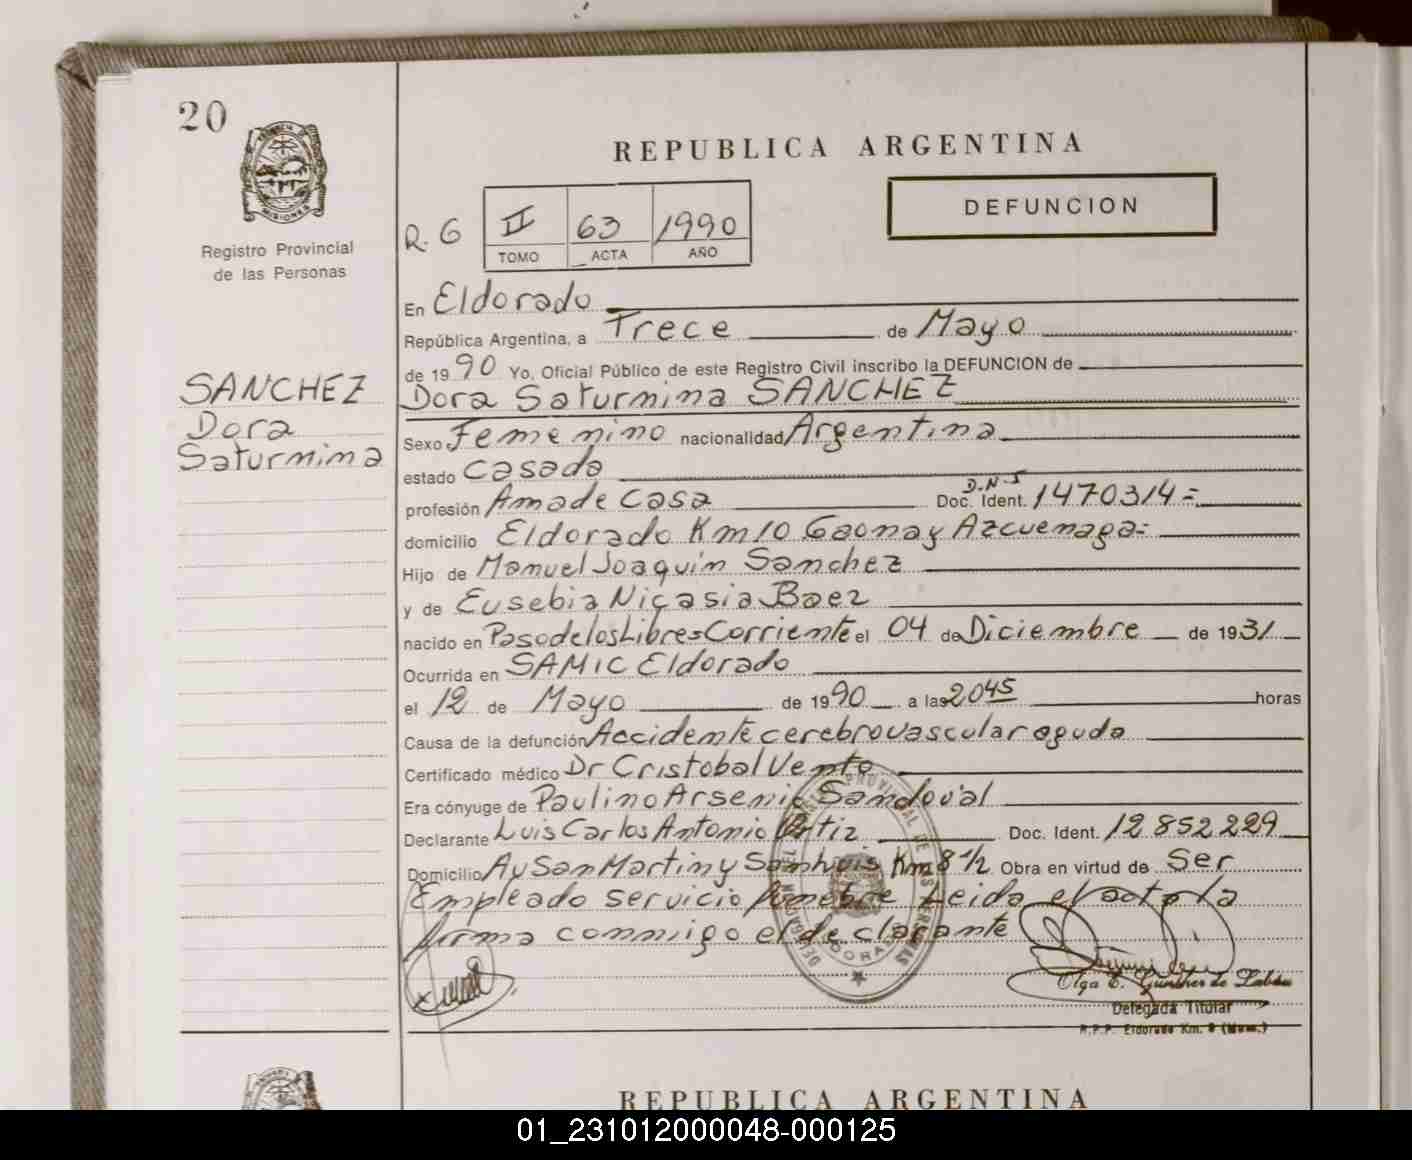 20
PROVINCIA DE
MISIONES
Registro Provincial
de las Personas
SANCHEZ
Dora
Saturnina
REPUBLICA ARGENTINA
DEFUNCION
R. G II 63 1990
TOMO ACTA AÑO
En Eldorado
República Argentina, a Trece de Mayo
de 1990 Yo, Oficial Público de este Registro Civil inscribo la DEFUNCION de
Dora Saturnina SANCHEZ
Sexo Femenino nacionalidad Argentina
estado Casada
profesión Ama de Casa Doc. Ident. 1470314=
domicilio Eldorado Km 10 Gaona y Azcuenaga=
Hijo de Manuel Joaquin Sanchez
y de Eusebia Nicasia Baez
nacido en Paso de los Libres Corriente el 04 de Diciembre de 1931
Ocurrida en SAMIC Eldorado
el 12 de Mayo de 1990 a las 2045 horas
Causa de la defunción Accidente cerebrovascular agudo
Certificado médico Dr Cristobal Vento
Era cónyuge de Paulino Arsenio Sandoval
Declarante Luis Carlos Antonio Ortiz Doc. Ident. 12852229
Domicilio Av San Martin y San Luis Km 8 1/2 Obra en virtud de Ser
Empleado servicio funebre Leida el acta la
firma conmigo el declarante
Olga E. Günther de
Delegada Titular
R.P.P. Eldorado Km. 9 (Mnes.)
REPUBLICA ARGENTINA
01_231012000048-000125